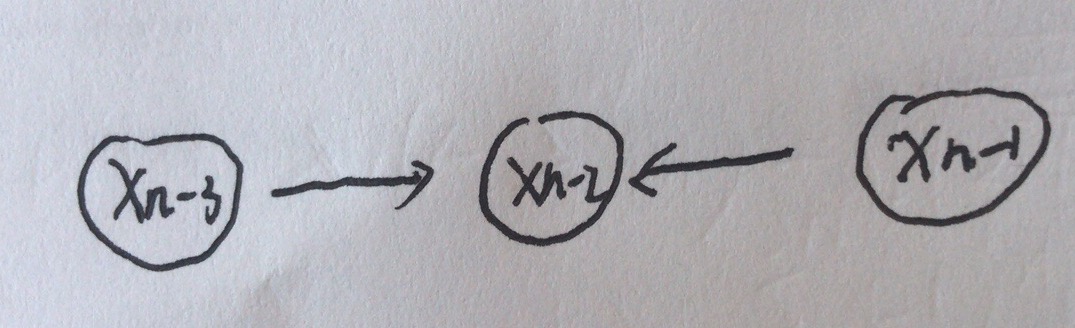 Xn-3 → Xn-2 ← Xn-1